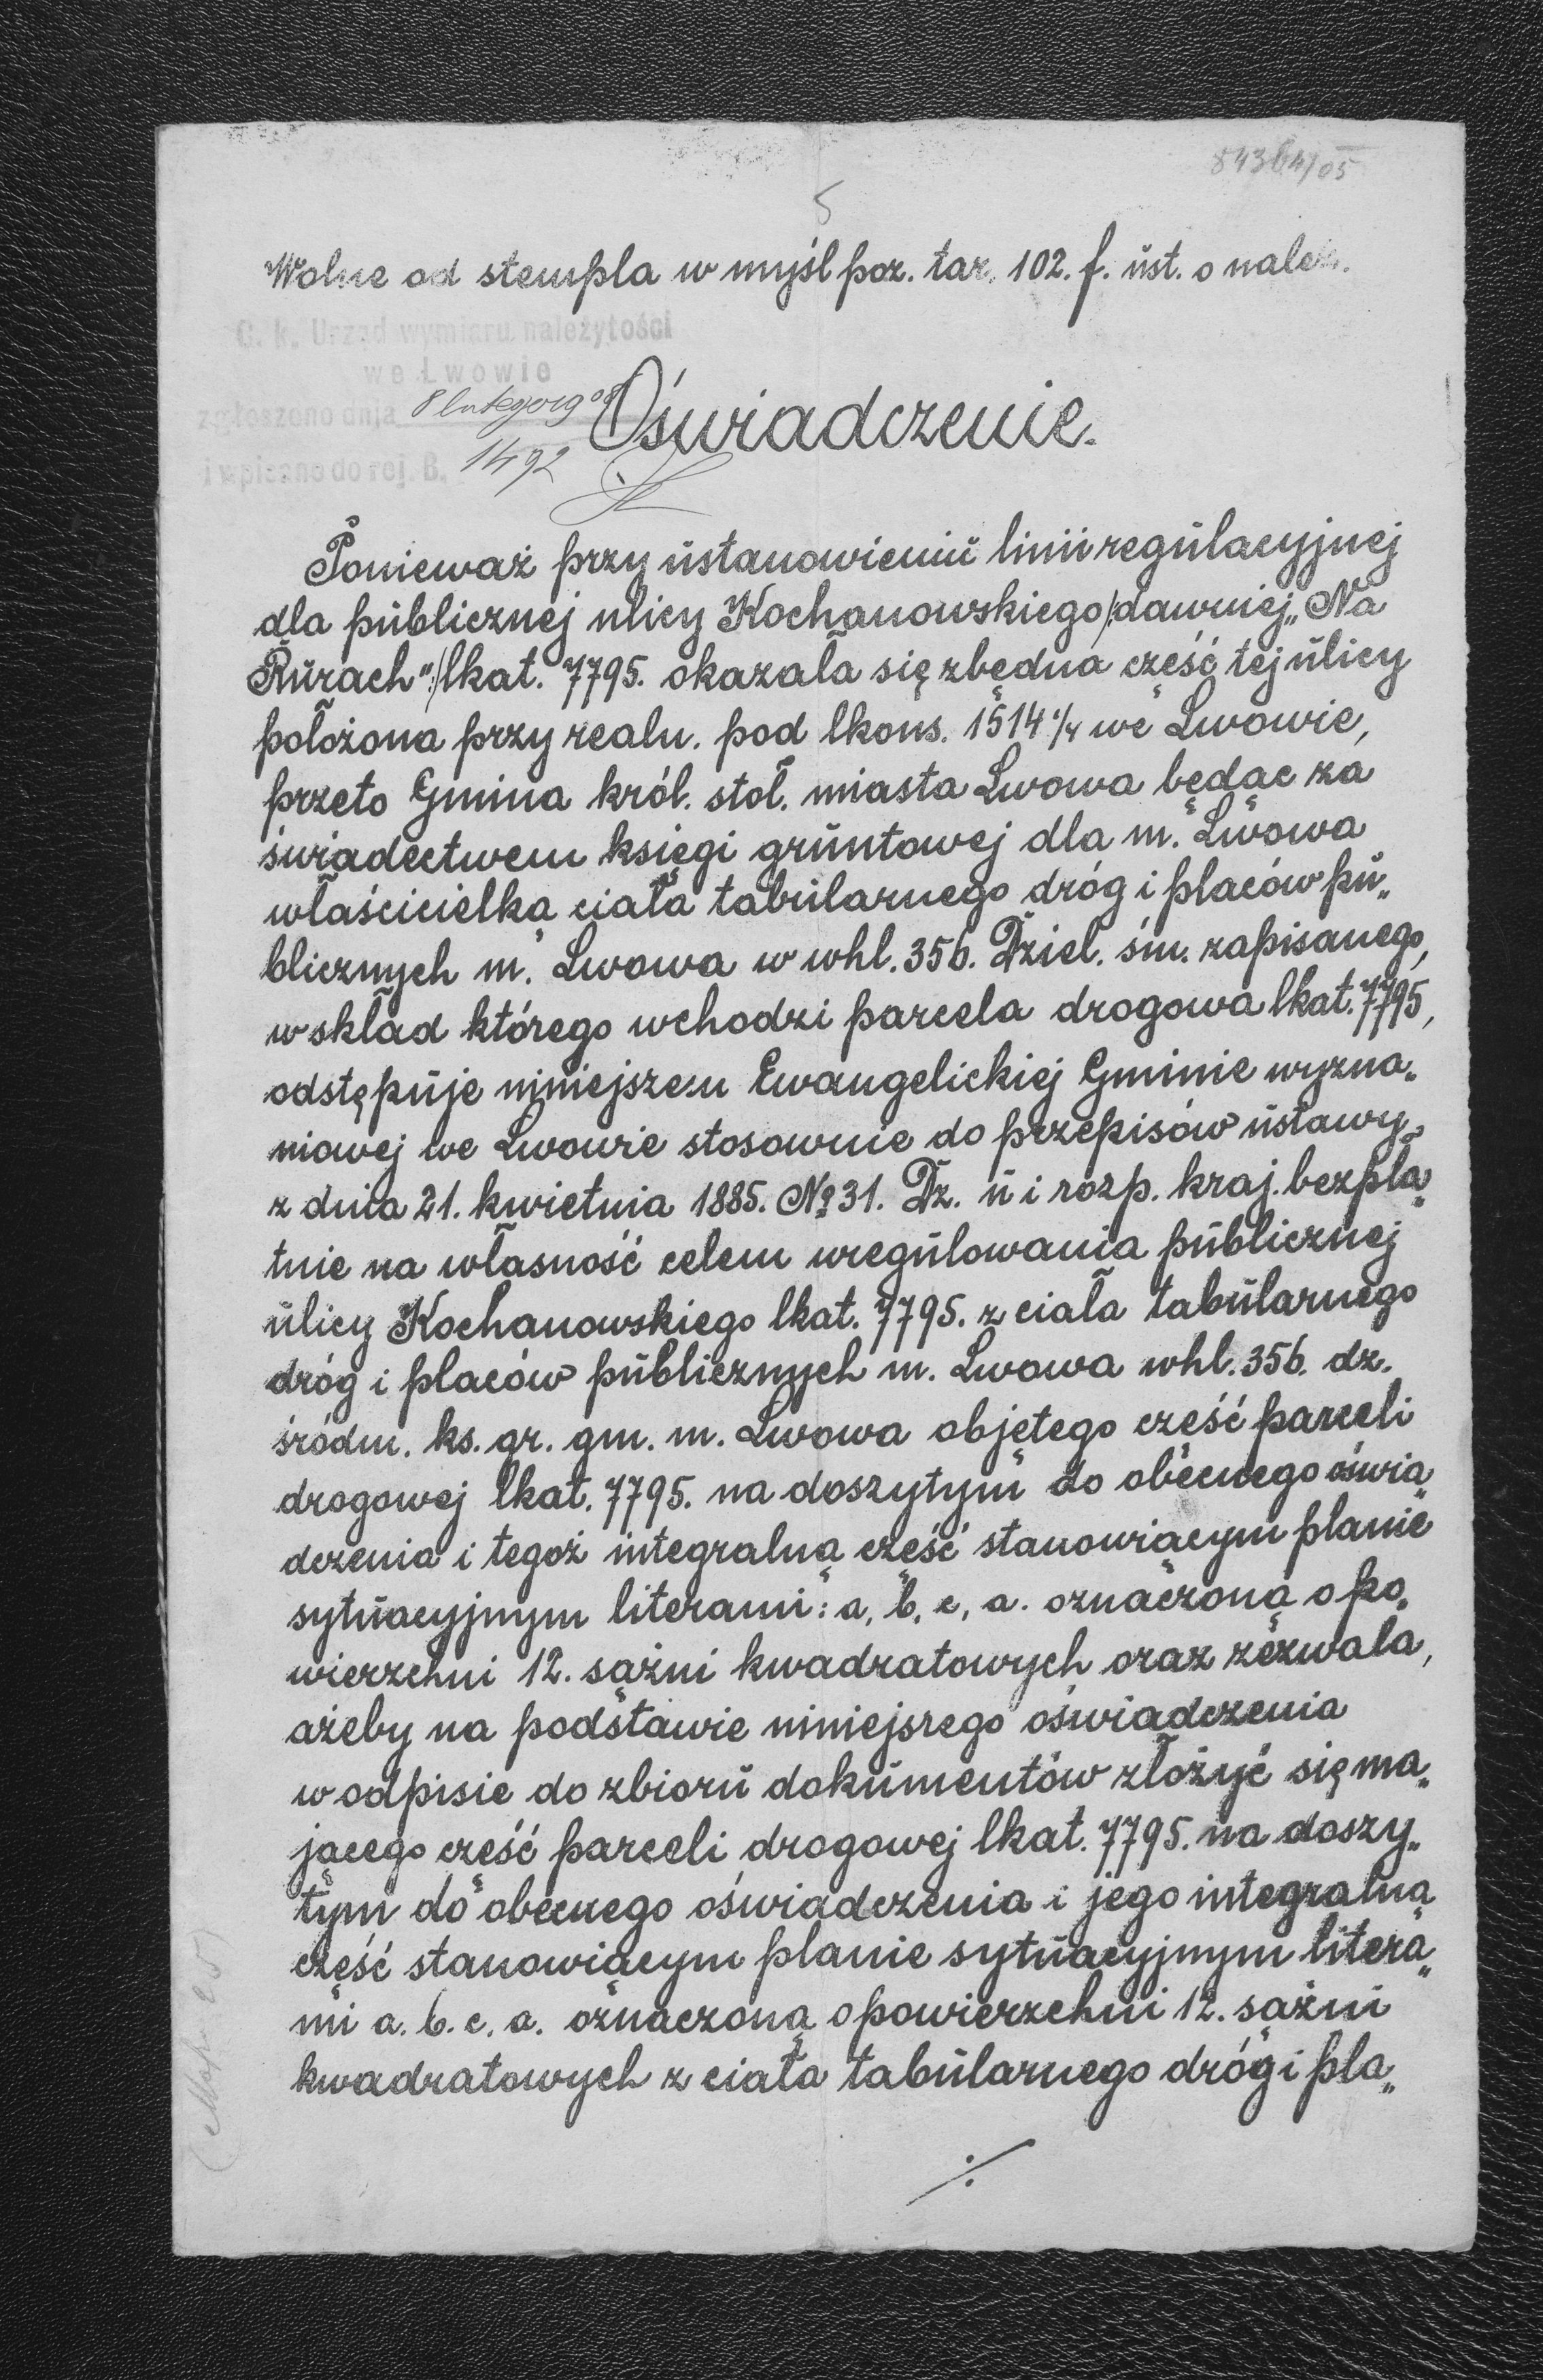 84364/05
5
Wolne od stempla w myśl poz. tar. 102. f. ust. o należ.
C. k. Urząd wymiaru należytości
we Lwowie
zgłoszono dnia 8 lutego 1908
i wpisano do rej. B. 1492
Oświadczenie.
Ponieważ przy ustanowieniu linii regulacyjnej
dla publicznej ulicy Kochanowskiego /:dawniej „Na
Rurach":/ lkat. 7795. okazała się zbędną część tej ulicy
położona przy realn. pod lkons. 1514 4/4 we Lwowie,
przeto Gmina król. stoł. miasta Lwowa będąc za
świadectwem księgi gruntowej dla m. Lwowa
właścicielką ciała tabularnego dróg i placów pu„
blicznych m. Lwowa w whl. 356. Dziel. śm. zapisanego,
w skład którego wchodzi parcela drogowa lkat. 7795,
odstępuje niniejszem Ewangelickiej Gminie wyzna„
niowej we Lwowie stosownie do przepisów ustawy
z dnia 21. kwietnia 1885. No 31. Dz. u i rozp. kraj. bezpła„
tnie na własność celem uregulowania publicznej
ulicy Kochanowskiego lkat. 7795. z ciała tabularnego
dróg i placów publicznych m. Lwowa whl. 356. dz.
śródm. ks. gr. gm. m. Lwowa objętego część parceli
drogowej lkat. 7795. na doszytym do obecnego oświa„
dczenia i tegoż integralną część stanowiącym planie
sytuacyjnym literami: a, b, c, a. oznaczoną o po„
wierzchni 12. sążni kwadratowych oraz zezwala,
ażeby na podstawie niniejszego oświadczenia
w odpisie do zbioru dokumentów złożyć się ma„
jącego część parceli drogowej lkat. 7795. na doszy„
tym do obecnego oświadczenia i jego integralną
część stanowiącym planie sytuacyjnym litera„
mi a. b. c. a. oznaczoną o powierzchni 12. sążni
kwadratowych z ciała tabularnego dróg i pla„
./.